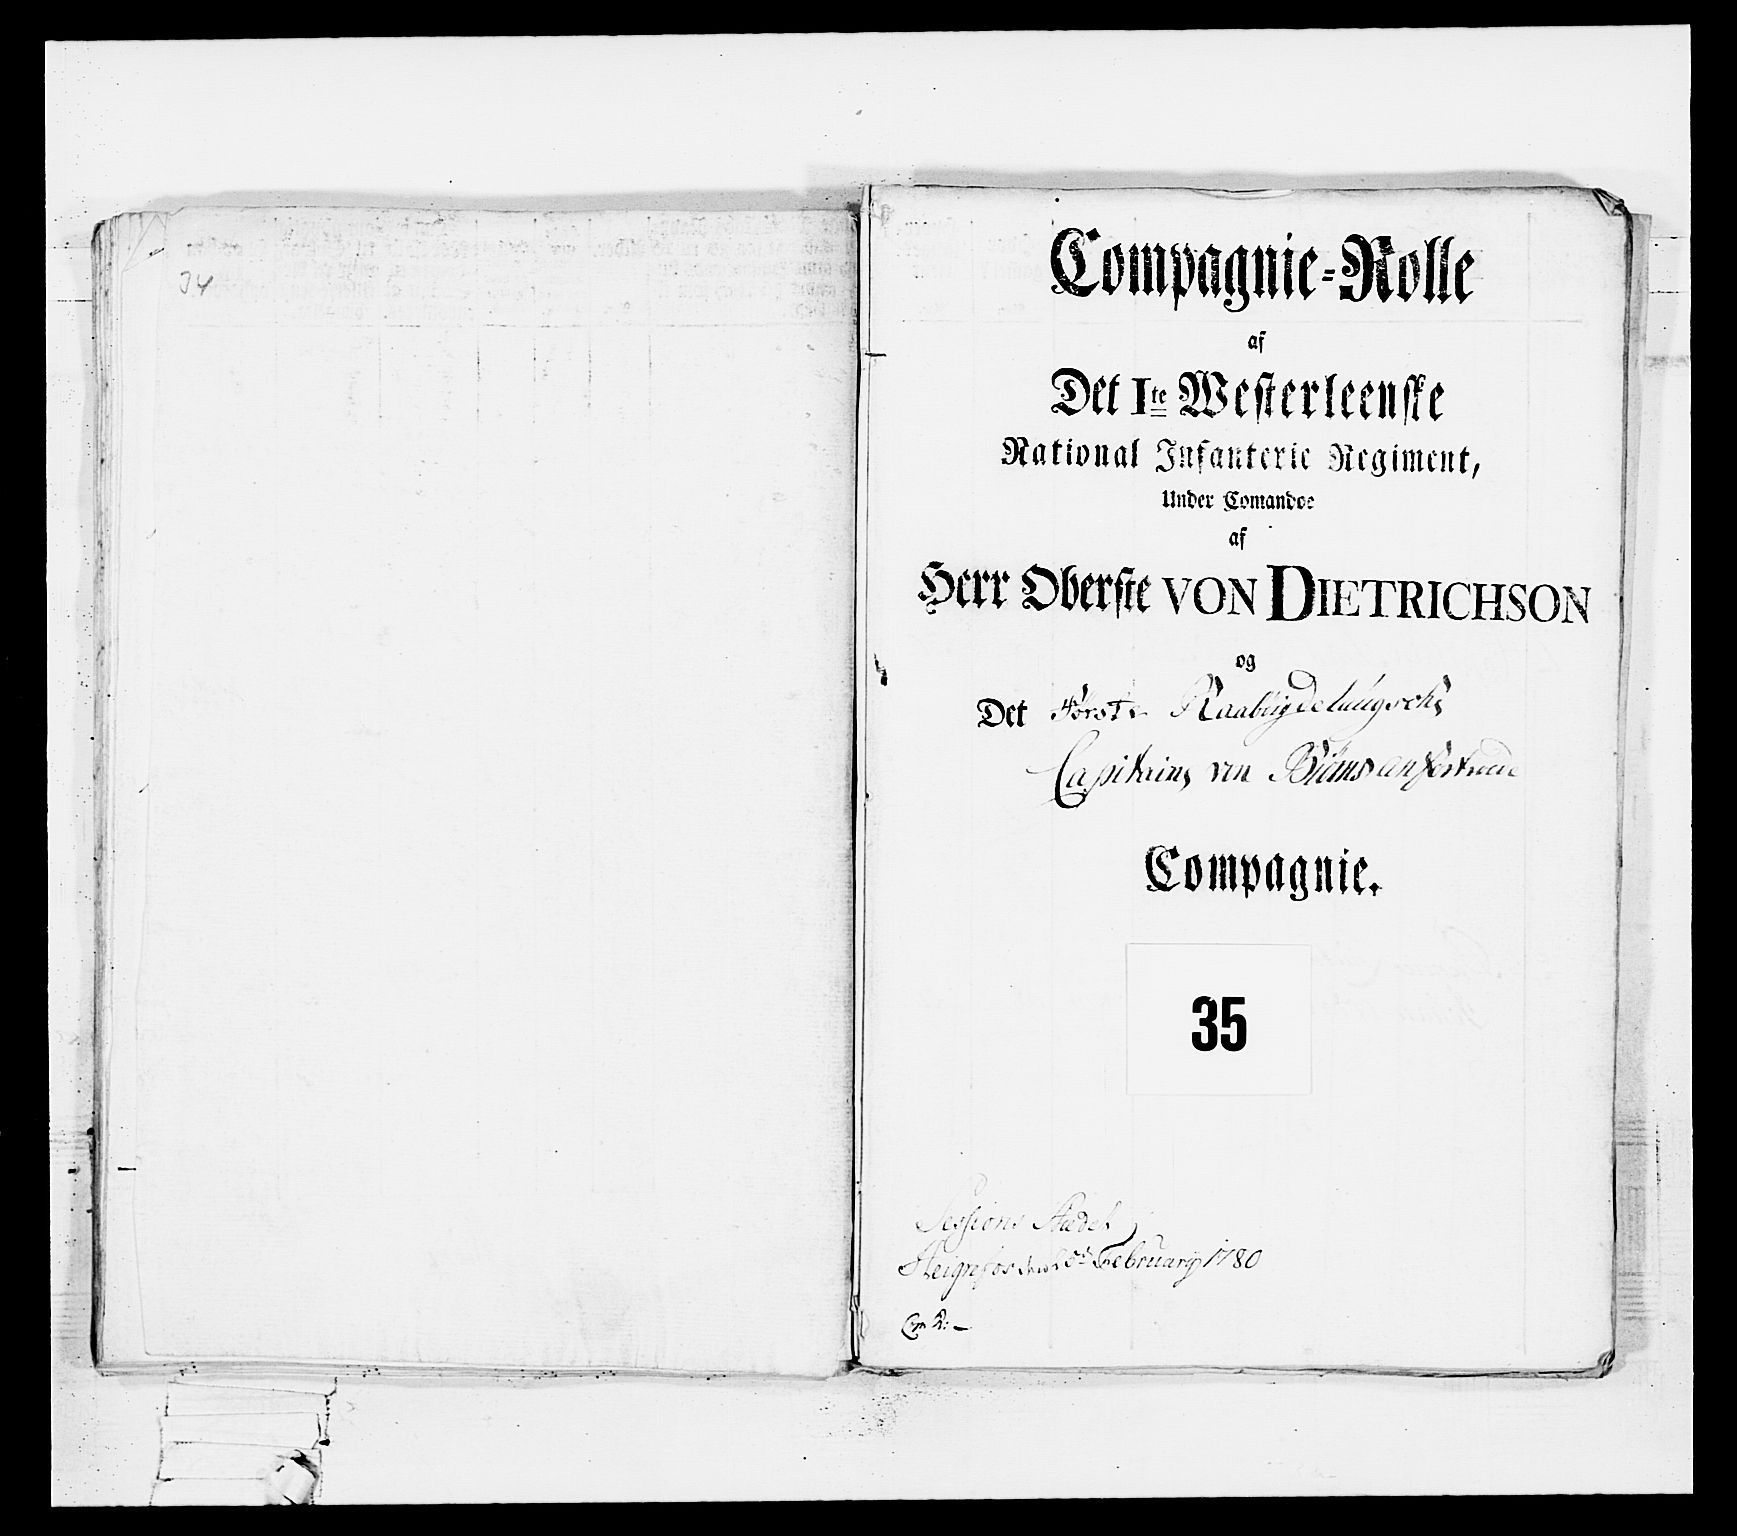 34
Compagnie-Rolle
af
Det I te Westerleenske
National Infanterie Regiment,
Under Comandoe
af
Herr Oberste VON DIETRICHSON
og
Det Første Raabÿgdelaugsche
Capitaine von
Compagnie.
35
Sessions Stædet
den 5te Februarij 1780